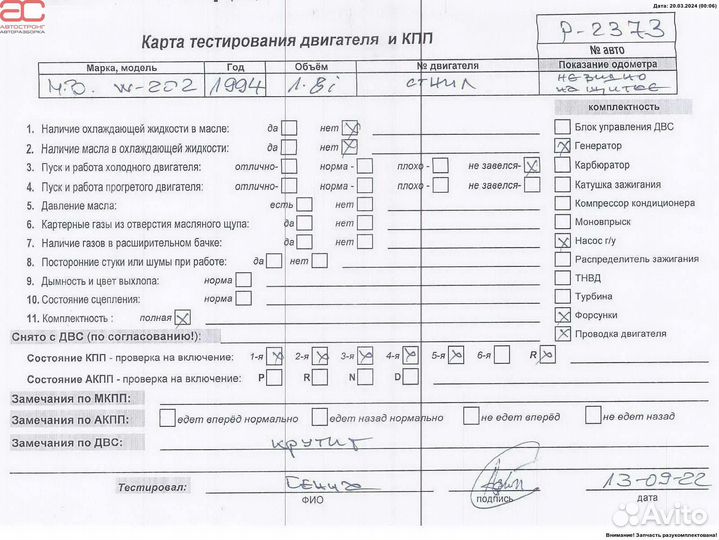 Дата: 20.03.2024 (00:06)
АС
АВТОСТРОНГ
АВТОРАЗБОРКА
Карта тестирования двигателя и КПП
P-2373
№ авто
Марка, модель Год Объём № двигателя Показание одометра
М.Б. W-202 1994 1.8i СТНИЛ не видно на щитке
комплектность
1. Наличие охлаждающей жидкости в масле: да нет
Блок управления ДВС
2. Наличие масла в охлаждающей жидкости: да нет
Генератор
3. Пуск и работа холодного двигателя: отлично- норма - плохо - не завелся-
Карбюратор
4. Пуск и работа прогретого двигателя: отлично- норма - плохо - не завелся-
Катушка зажигания
5. Давление масла: есть нет
Компрессор кондиционера
6. Картерные газы из отверстия масляного щупа: да нет
Моновпрыск
7. Наличие газов в расширительном бачке: да нет
Насос г/у
8. Посторонние стуки или шумы при работе: да нет
Распределитель зажигания
9. Дымность и цвет выхлопа: норма
ТНВД
10. Состояние сцепления: норма
Турбина
11. Комплектность : полная
Форсунки
Снято с ДВС (по согласованию!):
Проводка двигателя
Состояние КПП - проверка на включение: 1-я 2-я 3-я 4-я 5-я 6-я R
Состояние АКПП - проверка на включение: P R N D
Замечания по МКПП:
Замечания по АКПП: едет вперёд нормально едет назад нормально не едет вперёд не едет назад
Замечания по ДВС: крутит
Тестировал: 13-09-22
ФИО подпись дата
Avito
Внимание! Запчасть разукомплектована!